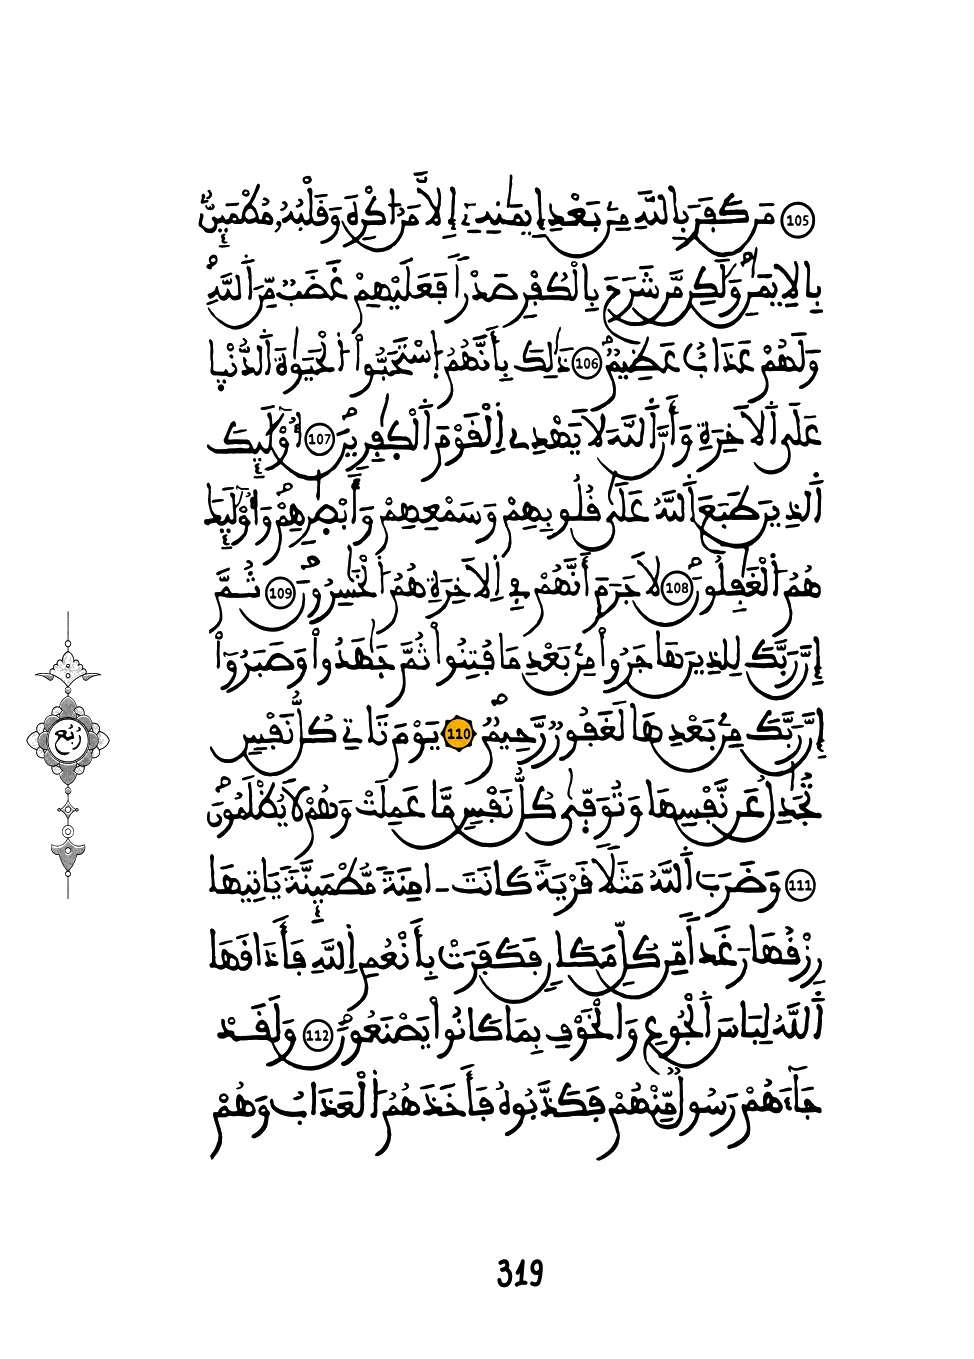 105 مَن كَفَرَ بِاللَّهِ مِنۢ بَعْدِ إِيمَٰنِهِۦٓ إِلَّا مَنُ ا۟كْرِهَ وَقَلْبُهُۥ مُطْمَئِنٌّۢ
بِالِايمَٰنِ وَلَٰكِن مَّن شَرَحَ بِالْكُفْرِ صَدْراً فَعَلَيْهِمْ غَضَبٌ مِّنَ اَللَّهِ
وَلَهُمْ عَذَابٌ عَظِيمٌ 106 ذَٰلِكَ بِأَنَّهُمُ اُ۪سْتَحَبُّوا۟ اُ۬لْحَيَوٰةَ اَ۬لدُّنْيَا
عَلَى اَ۬لَاخِرَةِ وَأَنَّ اَ۬للَّهَ لَا يَهْدِے اِ۬لْقَوْمَ اَ۬لْكَٰفِرِينَ 107 أُو۟لَٰٓئِكَ
اَ۬لذِينَ طَبَعَ اَ۬للَّهُ عَلَىٰ قُلُوبِهِمْ وَسَمْعِهِمْ وَأَبْصَٰرِهِمْ وَأُو۟لَٰٓئِكَ
هُمُ اُ۬لْغَٰفِلُونَ 108 لَا جَرَمَ أَنَّهُمْ فِے اِ۬لَاخِرَةِ هُمُ اُ۬لْخَٰسِرُونَ 109 ثُمَّ
إِنَّ رَبَّكَ لِلذِينَ هَاجَرُوا۟ مِنۢ بَعْدِ مَا فُتِنُوا۟ ثُمَّ جَٰهَدُوا۟ وَصَبَرُوٓا۟
إِنَّ رَبَّكَ مِنۢ بَعْدِهَا لَغَفُورٌ رَّحِيمٌ 110 يَوْمَ تَاتِے كُلُّ نَفْسٍ
تُجَٰدِلُ عَن نَّفْسِهَا وَتُوَفَّىٰ كُلُّ نَفْسٍ مَّا عَمِلَتْ وَهُمْ لَا يُظْلَمُونَ
111 وَضَرَبَ اَ۬للَّهُ مَثَلاً قَرْيَةً كَانَتَ اٰمِنَةً مُّطْمَئِنَّةً يَاتِيهَا
رِزْقُهَا رَغَداً مِّن كُلِّ مَكَانٍ فَكَفَرَتْ بِأَنْعُمِ اِ۬للَّهِ فَأَذَٰقَهَا
اَ۬للَّهُ لِبَاسَ اَ۬لْجُوعِ وَالْخَوْفِ بِمَا كَانُوا۟ يَصْنَعُونَ 112 وَلَقَدْ
جَآءَهُمْ رَسُولٌ مِّنْهُمْ فَكَذَّبُوهُ فَأَخَذَهُمُ اُ۬لْعَذَابُ وَهُمْ
رُبُع
319